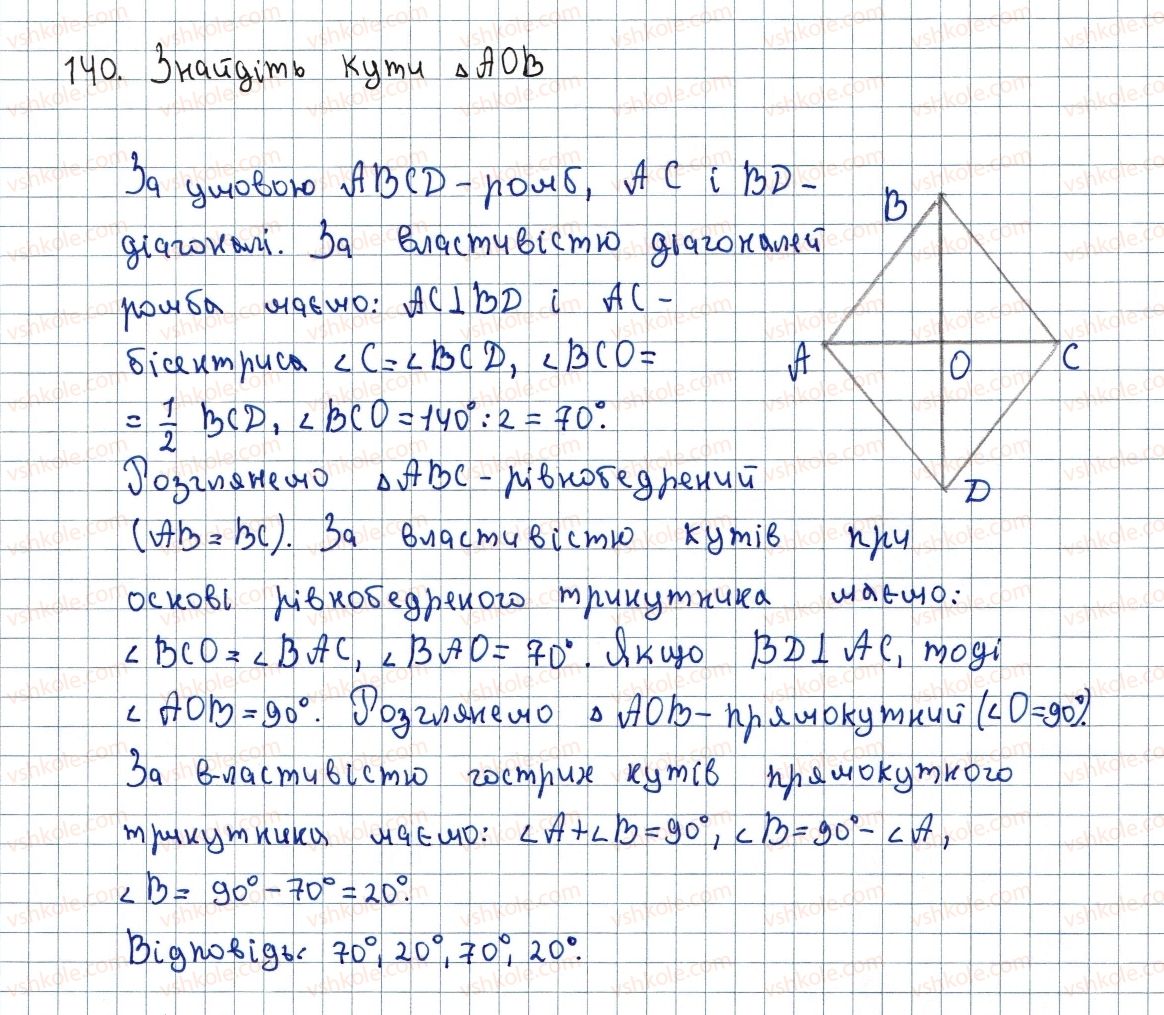 140. Знайдіть кути △AOB
За умовою ABCD - ромб, AC і BD -
діагоналі. За властивістю діагоналей
ромба маємо: AC⊥BD і AC -
бісектриса ∠C=∠BCD, ∠BCO=
= 1/2 BCD, ∠BCO=140°:2=70°.
Розглянемо △ABC - рівнобедрений
(AB=BC). За властивістю кутів при
основі рівнобедреного трикутника маємо:
∠BCO=∠BAC, ∠BAO=70°. Якщо BD⊥AC, тоді
∠AOB=90°. Розглянемо △AOB - прямокутний (∠O=90°).
За властивістю гострих кутів прямокутного
трикутника маємо: ∠A+∠B=90°, ∠B=90°-∠A,
∠B= 90°-70°=20°.
Відповідь: 70°, 20°, 70°, 20°.
B
A
O
C
D
vshkole.com